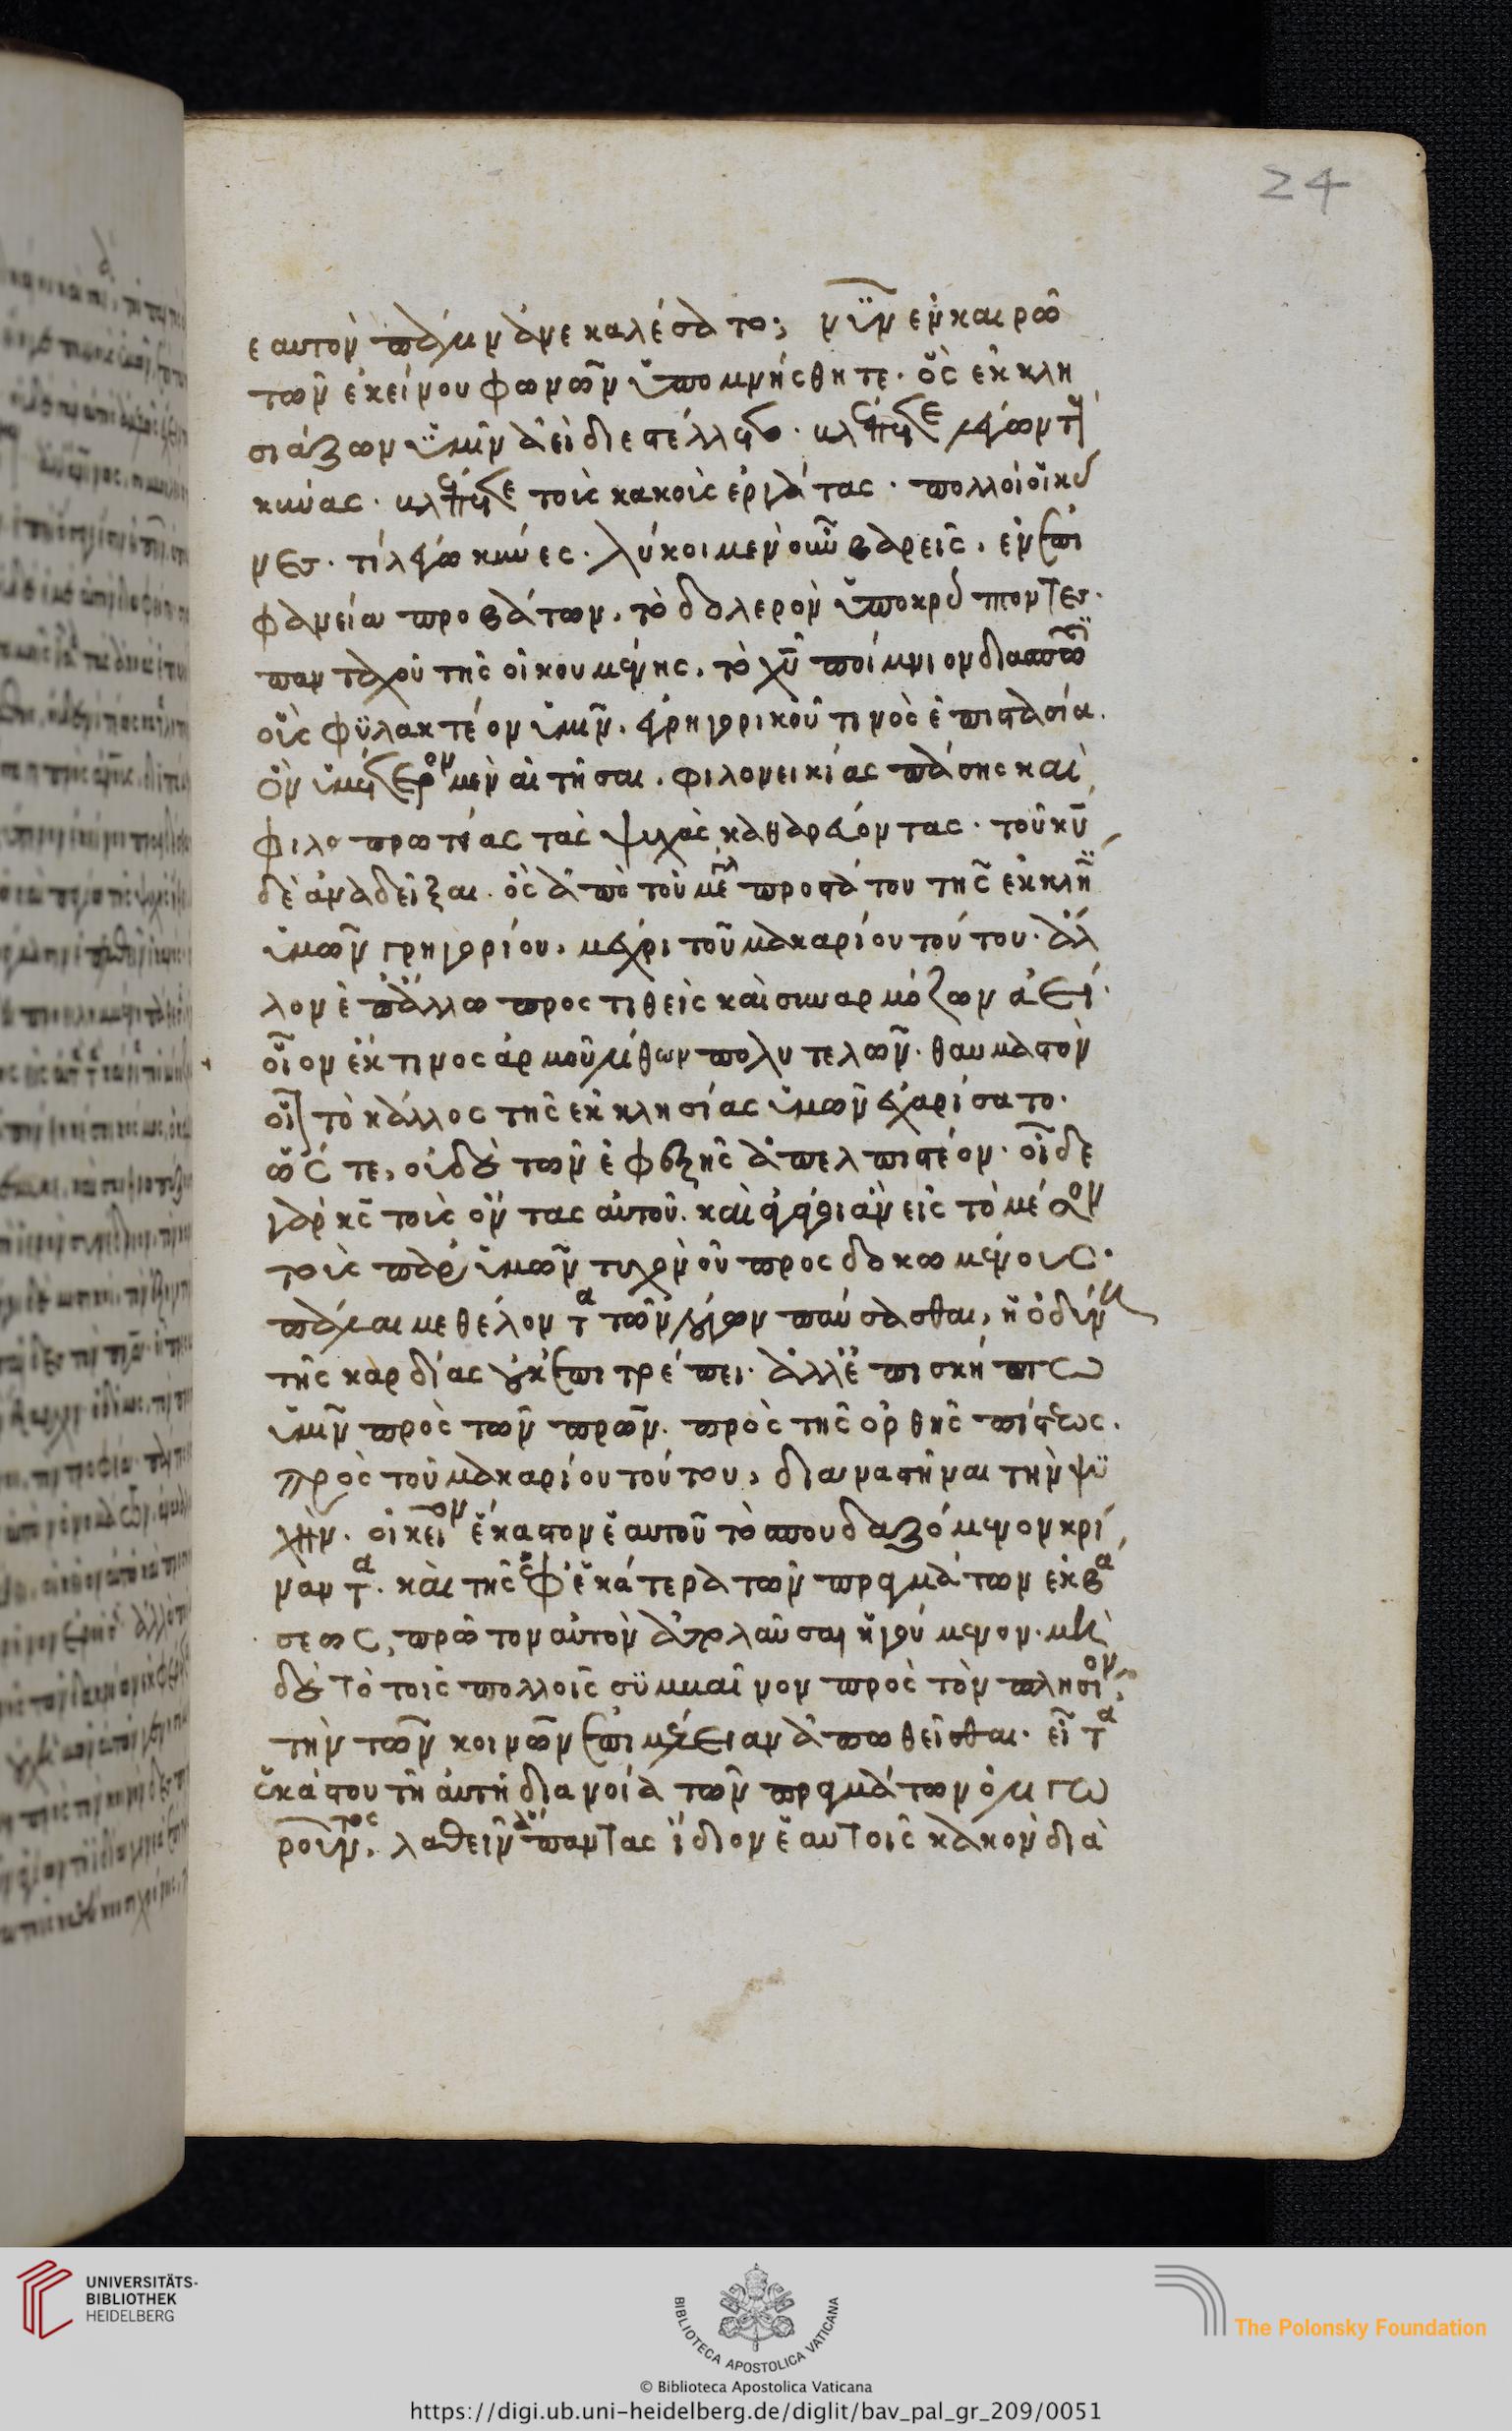 ἑαυτὸν πάλιν ἀνεκαλέσατο; νῦν ἐν καιρῶ
τῶν ἐκείνου φωνῶν ὑπομνήσθητε. ὃς ἐκκλη
σιάζων ὑμῖν ἀεὶ διεστέλλετο. βλέπετε λέγων τοὺς
κύνας. βλέπετε τοὺς κακοὺς ἐργάτας. πολλοὶ οἱ κύ
νες. τί λέγω κύνες. λύκοι μὲν οὖν βαρεῖς, ἐν ἐπι
φανεία προβάτων, τὸ δολερὸν ὑποκρύπτοντες.
πανταχοῦ τῆς οἰκουμένης, τὸ χῦ ποίμνιον διασπῶ
οὓς φυλακτέον ὑμῖν, ἐγρηγορικοῦ τινὸς ἐπιστασία.
ὃν ὑμέτερον μὲν αἰτῆσαι, φιλονεικίας πάσης καὶ
φιλοπρωτίας τὰς ψυχὰς καθαρεύοντας. τοῦ κῦ
δὲ ἀναδεῖξαι. ὃς ἀπὸ τοῦ μεγάλου προστάτου τῆς ἐκκλη
ὑμῶν γρηγορίου, μέχρι τοῦ μακαρίου τούτου. ἄλ
λον ἐπ' ἄλλω προστιθεὶς καὶ συναρμόζων ἀεί.
οἷον ἔκ τινος ἁρμοῦ λίθων πολυτελῶν. θαυμαστὸν
οἷον τὸ κάλλος τῆς ἐκκλησίας ὑμῶν ἐχαρίσατο.
ὥστε, οὐδὲ τῶν ἐφεξῆς ἀπελπιστέον. οἶδε
γὰρ κς τοὺς ὄντας αὐτοῦ. καὶ ἀγάγοι ἂν εἰς τὸ μέσον
τοὺς παρ' ὑμῶν τυχὸν οὐ προσδοκωμένους.
πάλαι με θέλοντα τῶν λόγων παύσασθαι, ἡ ὀδύνη
τῆς καρδίας οὐκ ἐπιτρέπει. ἀλλ' ἐπισκήπτω
ὑμῖν πρὸς τῶν πρῶν. πρὸς τῆς ὀρθῆς πίστεως.
πρὸς τοῦ μακαρίου τούτου, διαναστῆναι τὴν ψυ
χὴν. οἰκεῖον ἕκαστον ἑαυτοῦ τὸ σπουδαζόμενον κρί
ναντα. καὶ τῆς ἐφ' ἑκάτερα τῶν πραγμάτων ἐκβά
σεως, πρῶτον αὐτὸν ἀπολαῦσαι ἡγούμενον. μὴ
δὲ τὸ τοῖς πολλοῖς συμβαῖνον πρὸς τὸν πλησίον,
τὴν τῶν κοινῶν ἐπιμέλειαν ἀπωθεῖσθαι. εἶτα
ἑκάστου τῆ αὐτῆ διανοία τῶν πραγμάτων ὀλιγω
ροῦντος, λαθεῖν ἅπαντας ἴδιον ἑαυτοῖς κακὸν διὰ
24
UNIVERSITÄTS-
BIBLIOTHEK
HEIDELBERG
BIBLIOTECA APOSTOLICA VATICANA
© Biblioteca Apostolica Vaticana
The Polonsky Foundation
https://digi.ub.uni-heidelberg.de/diglit/bav_pal_gr_209/0051